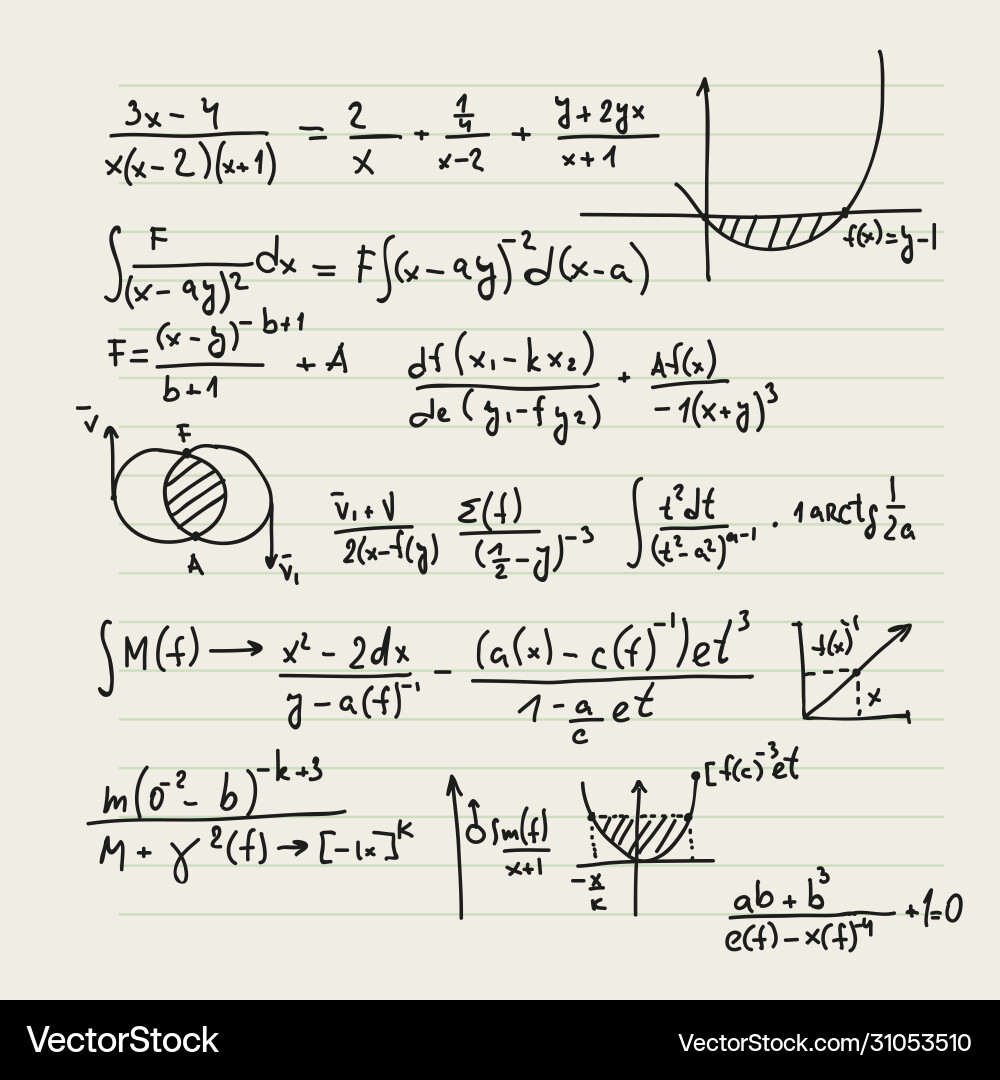 (3x - 4)/(x(x - 2)(x+1)) = 2/x + (1/4)/(x-2) + (y + 2yx)/(x + 1)
f(x)=y-1
∫ F/(x - ay)² dx = F∫(x - ay)⁻² d(x-a)
F = (x - y)^(-b+1)/(b+1) + A
df(x₁ - kx₂)/de(y₁-fy₂) + Af(x)/-1(x+y)³
v̄
F
A
v̄₁
(v̄₁ + V)/2(x-f(y) Σ(f)/(1/2 - y)⁻³ ∫ t²dt/(t²-a²)^(a-1) · 1 arctg 1/2a
∫ M(f) → (x² - 2dx)/(y - a(f)⁻¹) - ((a(x) - c(f)⁻¹)et³)/(1 - a/c et)
f(x)⁻¹
x
m(o⁻² - b)^(-k+3)/(M + γ²(f) → [-1x]^K
∫m(f)/(x+1)
[f(c)⁻³et
-x/K
(ab + b³)/(e(f) - x(f)⁻⁴) + 1=0
VectorStock
VectorStock.com/31053510